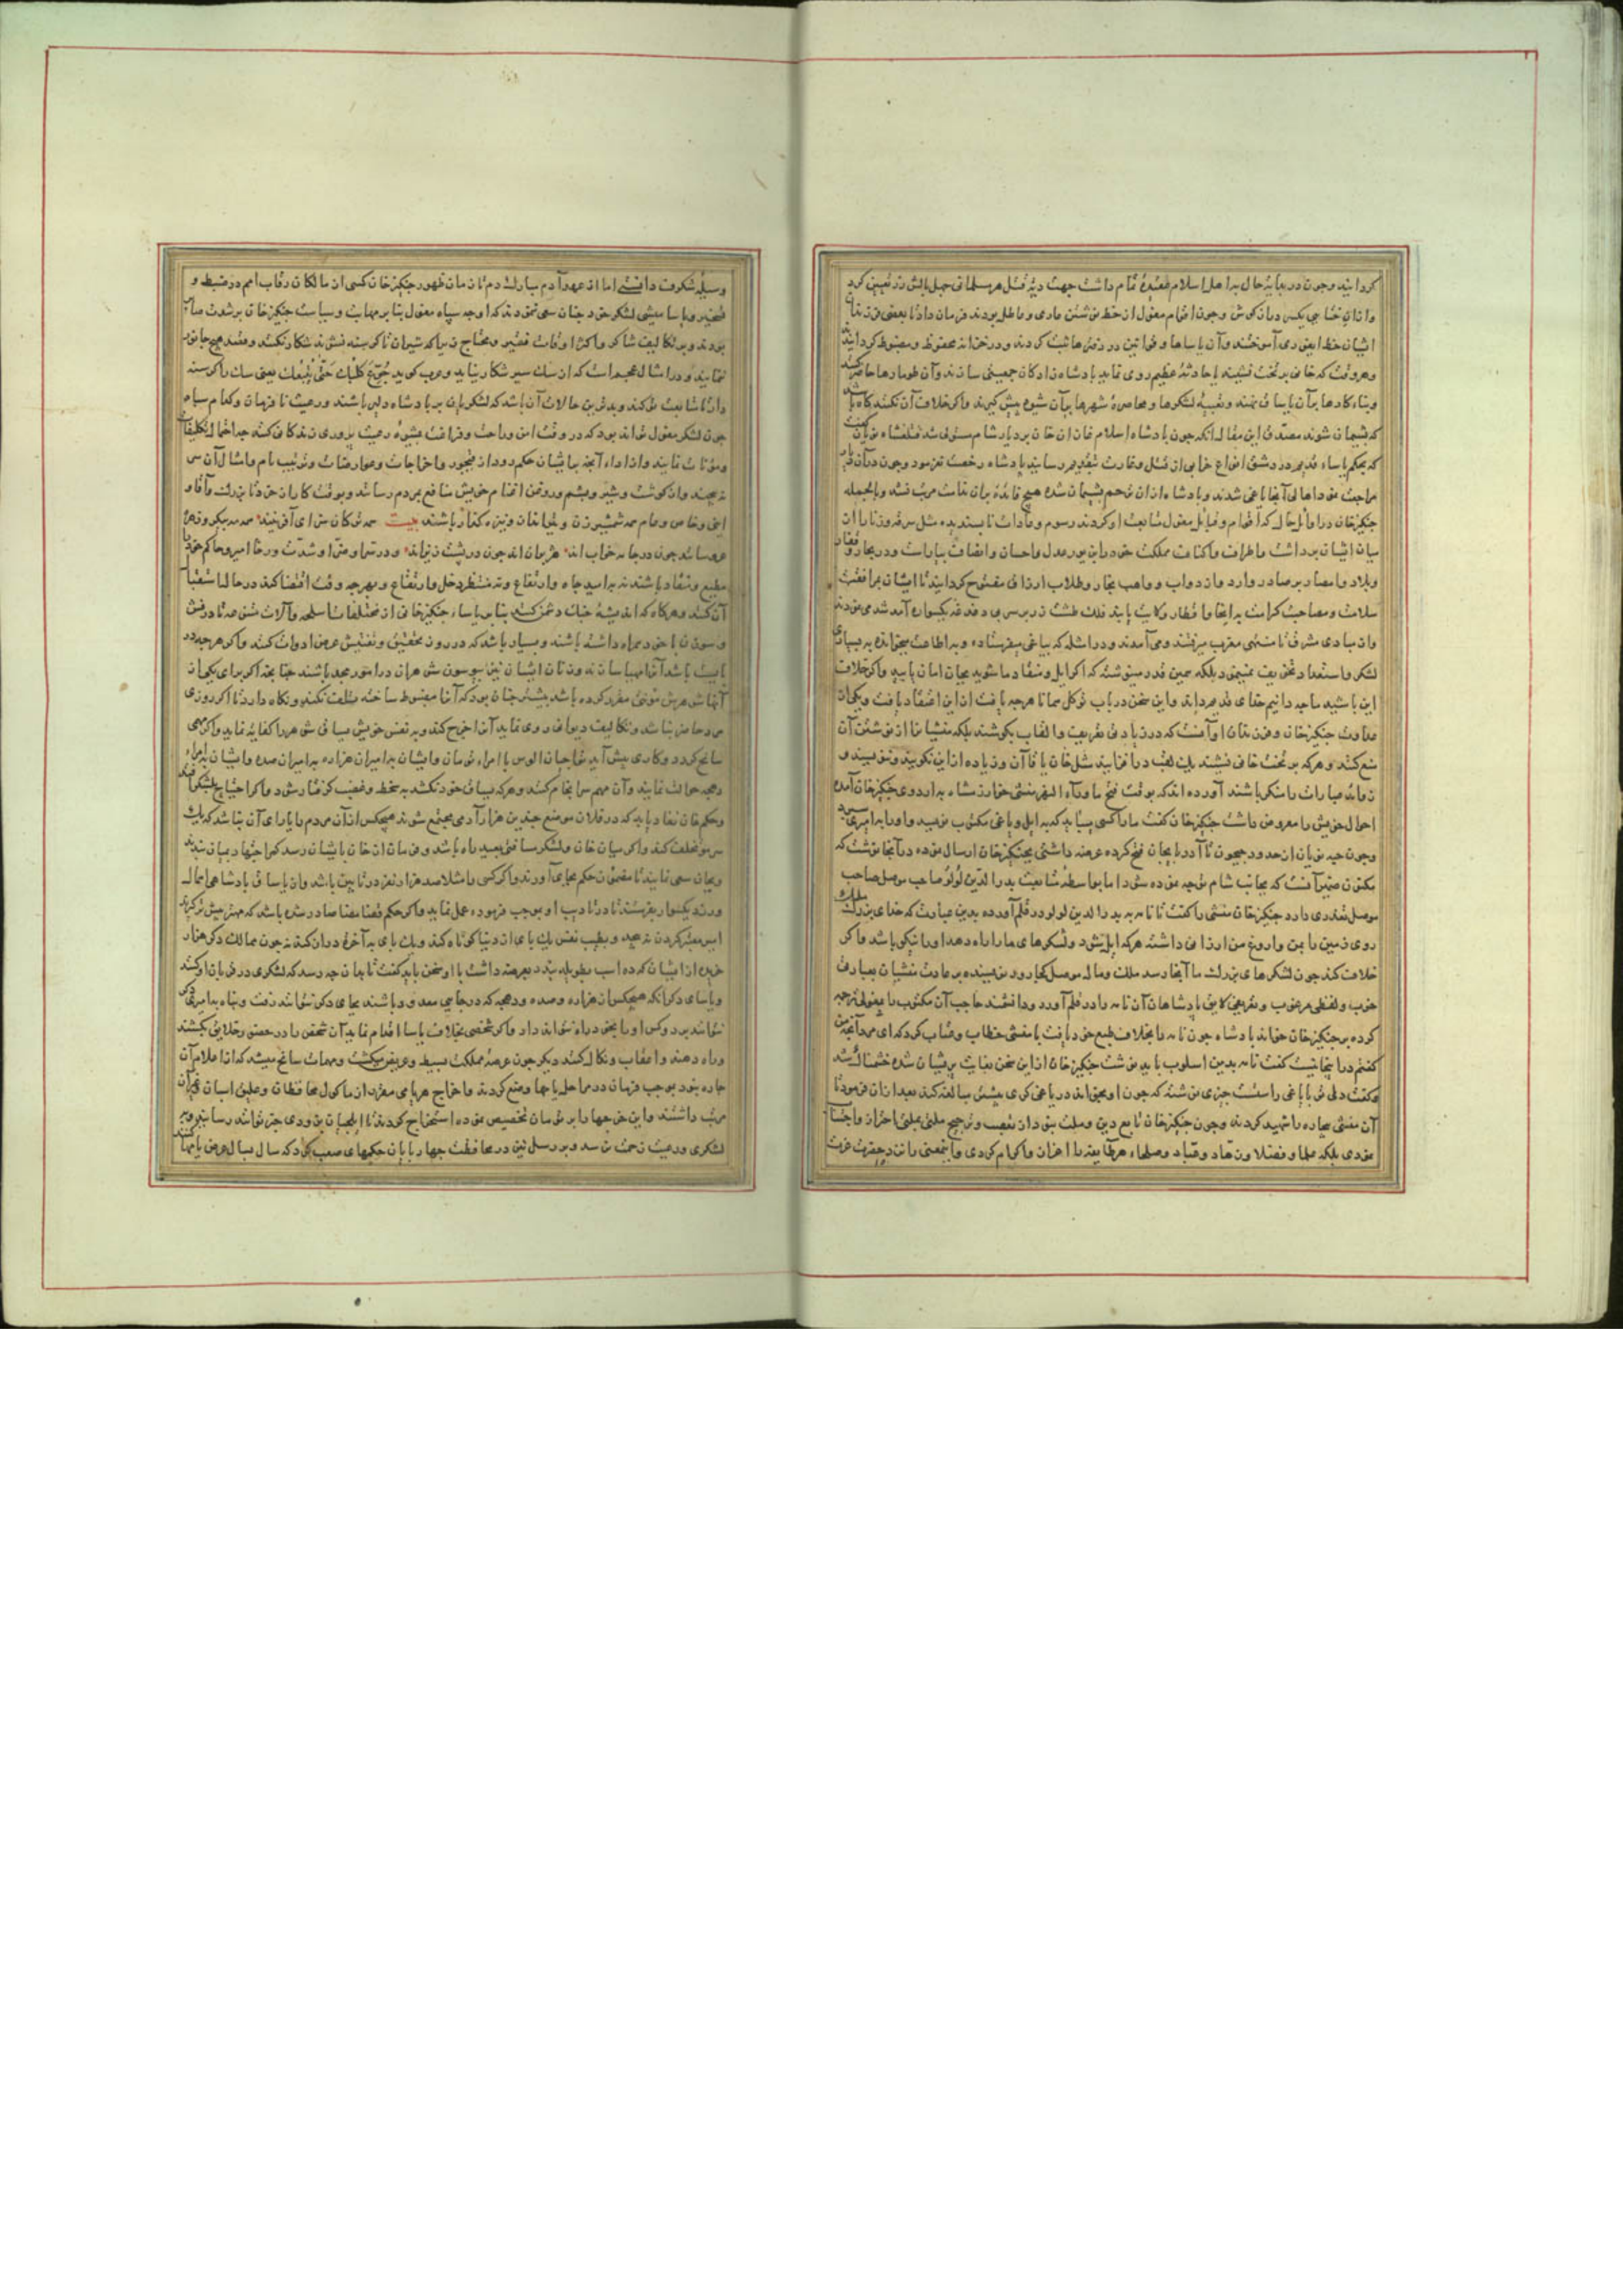 کردانید و چون در بدایة حال بر اهل اسلام عقیدهٔ تمام داشت جهت دیهٔ قتل هر مسلمانی چهل بالش زر تعیین کرد
و ازان ختایی یکسر درازکوش و چون اقوام مغول از خط نوشتن عاری و عاطل بودند فرمان داد تا بعضی فرزندان
ایشان خط ایغوری آموختند و آن یاساها و قوانین در دفترها ثبت کردند و در خزانه محفوظ و مضبوط کردانیدند
و هر وقت که خانی بر تخت نشیند یا حادثهٔ عظیم روی نماید پادشاه زادکان جمعیتی سازند و آن طومارها حاضر کنند
و بناء کارها بر آن یاساق نهند و تعبیهٔ لشکرها و محاصرهٔ شهرها بر آن شیوه پیش کیرند و اکر خلاف آن کنند کاه باشد
که پشیمان شوند مصدق این مقال آنکه چون پادشاه اسلام غازان خان بر دیار شام مستولی شد قتلغشاه نویان کفت
که بحکم یاساء قدیم در دمشق انواع خرابی از قتل و غارت بتقدیم رسانید پادشاه رخصت نفرمود و چون در آن
مراجعت نمود اهالی آنجا یاغی شدند و پادشاه ازان ترحم پشیمان شده هیچ فایده بران ندامت مرتب نشد و بالجمله
چنکیزخان در اوایل حال که اقوام و قبایل مغول متابعت او کردند رسوم و عادات ناپسندیده مثل سرقه و زنا را از
میان ایشان برداشت و اطراف و اکناف مملکت خود را بزیور عدل و احسان و انصاف بیاراست و در بحار و قفار
و بلاد و امصار بر صادر و وارد و ازدواب و مواهب تجار و طلاب ارزاق مفتوح کردانید تا ایشان بمرافقت
سلامت و مصاحبت کرامت بر ایغا و اقطار رکایب پایند فلک طشت زر بر سر بی دغدغه یکسواره آمد شد می نمودند
و از مبادی مشرق تا منتهی مغرب میرفتند و می آمدند و در امثله که بیاغی میفرستاد و بر اطاعت میخواند به بسیاری
لشکر و استعداد تخویف نمی نمود بلکه همین قدر مینوشت که اکر ایل و منقاد ما شوید بجان امان یابید و اکر خلاف
این باشید ما چه دانیم خدای قدیم داند و این سخن در باب توکل همانا هرچه یافت ازین اعتقاد یافت و یکی از
عادت چنکیزخان و فرزندان او آنست که در زیادتی تعریف و القاب نکوشند بلکه منشیانرا از نوشتن آن
منع کنند و هرکه بر تخت خانی نشیند یک لقب درافزایند مثل خان یا قاآن و زیاده ازین نکویند و ننویسند و
زواید عبارات را منکر باشند آورده اند که بوقت فتح ماوراء النهر منشی خوارزمشاه به اردوی چنکیزخان آمده
احوال خویش را معروض داشت چنکیزخان کفت ما را کسی میباید که به ایل و یاغی مکتوب نویسد و او را به امیری
و چون جبه نویان از حدود جیحون تا آذربایجان فتح کرده عرضه داشتی بچنکیزخان ارسال نموده درآنجا نوشت که
مکنون ضمیر آنست که بجانب شام توجه نموده شود اما بواسطهٔ متابعت بدرالدین لؤلؤ صاحب موصل صاحب
موصل تعذری دارد چنکیزخان منشی را کفت تا نامه بدرالدین لولو در قلم آورده بدین عبارت که خدای بزرک ملک
روی زمین را بمن و اروغ من ارزانی داشته هرکه ایل شود و لشکرهای ما را راه دهد او را نیکو باشد و اکر
خلاف کند چون لشکرهای بزرک ما آنجا رسد ملک و مال موصل کجا رود نویسنده بر عادت منشیان بعبارتی
خوب و لفظی مرغوب و تعریفی لایق پادشاهان آن نامه را در قلم آورد و دانشمند حاجب آن مکتوب را بمغولی ترجمه
کرده بر چنکیزخان خواند پادشاه چون نامه را بخلاف طبع خود یافت با منشی خطاب و عتاب کرد که ای مرد آنچه من
کفتم درینجا نیست کفت نامه بدین اسلوب باید نوشت چنکیزخان ازین سخن بغایت پریشان شده خشمناک شد
و کفت دل تو با یاغی راست چیزی نوشته که چون او بخواند در یاغی کری بیشتر مبالغه کند بعد ازان فرمود تا
آن منشی بیچاره را شهید کردند و چون چنکیزخان تابع دین و ملت نبود از تعصب و ترجیح ملتی بملتی احتراز واجتناب
نمودی بلکه علما و فضلا و زهاد و عباد و صلحاء هر طایفه را اعزاز و اکرام کردی و اینمعنی را نزد حضرت عزت
وسیلهٔ شکرف دانستی اما از عهد آدم مبارک دم تا زمان ظهور چنکیزخان کسی از مالکان رقاب امم در ضبط و
تسخیر و یاسامیشی لشکر خود چنان سعی ننمودند که اوچه سپاه مغول بنابر مهابت و سیاست چنکیزخان بر شدت صابر
بودند و بر تکالیف شاکر و اکثر اوقات فقیر و محتاج زیراکه شیران تا کرسنه نشوند شکار نکنند و قصد هیچ جانور
ننمایند و در امثال عجم است که از سک سیر شکار نیاید و عرب کوید جَوِّع کلبک حتی یتبعک یعنی سک را کرسنه
دار تا متابعت تو کند و بدترین حالات آن باشد که لشکریان بر پادشاه دلیر باشند و رعیت نافرمان و کدام سپاه
چون لشکر مغول تواند بود که در وقت امن و راحت و فراغت بشیوهٔ رعیت پروری زندکانی کنند جداخما لتکلیفات
و مؤنات نمایند و ازاداء آنچه برایشان حکم رود از قبجور و اخراجات و عوارضات و ترتیب یام و امثال آن سر
نپیچند و از کوشت و شیر و پشم و روغن اغنام خویش منافع بمردم رسانند و بوقت کارزار خرد تا بزرک و آقا و
اینی و خاص و عام همه شمشیرزن و تیرانداز و نیزه کذار باشند بیت همه ترکان سزای آفرینند همه در پیکر و زهره
عروسانند چون در جامه خواب اند هژبران اند چون در پشت زین اند و در سرّاء و ضرّاء و شدّت و رخا امیر و حاکم خود را
مطیع و منقاد باشند نه بر امید جاه و ارتفاع و نه منتظر دخل و ارتفاع و بهر چه وقت اقتضا کند در حال استقبال
آن کنند و هرکاه که اندیشهٔ خیانت دشمن کنند بنابر یاساء چنکیزخانی از مختلفات اسلحه و آلات سوزن تا درفش
و سوزن با خود همراه داشته باشند و بسیار باشد که در روز تحقیق و تفتیش عرض ادوات کنند و اکر هرچه در
بایست باشد آنرا مهیا سازند و زنان ایشان نیز بر سون شوهران در امور مجد باشند چنانچه اکر برای یکی از
آنها شوهرش مؤنتی مقرر کرده باشد بیشتر چنان بود که آنرا مضبوط ساخته و تلف نکنند و نکاه دارد تا اکر روزی
مرد حاضر نباشد و تکالیف دیوانی روی نماید آنرا خرج کند و بر نفس خویش میاقی شوهر را کفایة نماید و اکر مهمی
سانح کردد و کاری پیش آید تواجیان الوس با امراء تومان و ایشان بر امیران هزاره بر امیران صده و ایشان بر امراء
دهجه حوالت نمایند و آن مهم سرانجام کنند و هرکه بیاق خود نکشد به سخط و غضب کرفتار شود و اکر احتیاج بلشکر افتد
و حکم خان نفاذ یابد که در فلان موضع چندین هزار آدمی مجتمع شوند هیچکس از آن مردم را یارای آن نباشد که یک
سر مو تخلف کند و اکر میان خان و لشکر مسافتی بعید باشد و فرمان از خان بایشان رسد کمر اجتهاد بمیان بندند
و بجان سعی نمایند تا مضمون حکم بجای آورند و اکر کسی را مثلا صد هزار نفر در تابین باشد و از یاساق پادشاهی اهمال
ورزد یکسوار بفرستند تا در تادیب او بموجب فرموده عمل نماید و اکر حکم قضا مضا صادر شده باشد که مهتر پیش نوکر
امیر معتبر کردن نرم نهد و بطیب نفس یک پای از دنیا کوتاه کند و یک پای به آخرة دراز کند نه چون ممالک دکر هزار
خربنده از ایشان که ده اسب بطویله بندد بمرتبه داشت با او سخن باید کفت تا بدان چه رسد که لشکری در فرمان او کنند
و یاسای دکر آنکه هیچکس از هزاره و صده و دهجه که درجایی معدود باشند بجای دکر نتوانند رفت و پناه به امیر دکر
نتوانند برد و کس او را بخود راه نتواند داد و اکر شخصی بخلاف یاسا اقدام نماید آن شخص را در حضور خلایق بکشند
و راه دهنده را عقاب و نکال کنند دیکر چون عرصهٔ مملکت بسیط و عریض میکشت و مهمات سانح میشد که از اعلام آن
چاره نبود بموجب فرمان در مراحل یامها وضع کردند و اخراج هر یامی مقرر از ماکول محافظان و علیق اسبان قرار آن
مرتب داشتند و این خرجها را بر تومان تخصیص نموده استخراج کردند تا ایلچیان بزودی خبر توانند رسانید و بر
لشکری و رعیت زحمت نرسد و بر رسل نیز در محافظت چهارپایان حکمهای صعب کرد که سال بسال عرض یامها